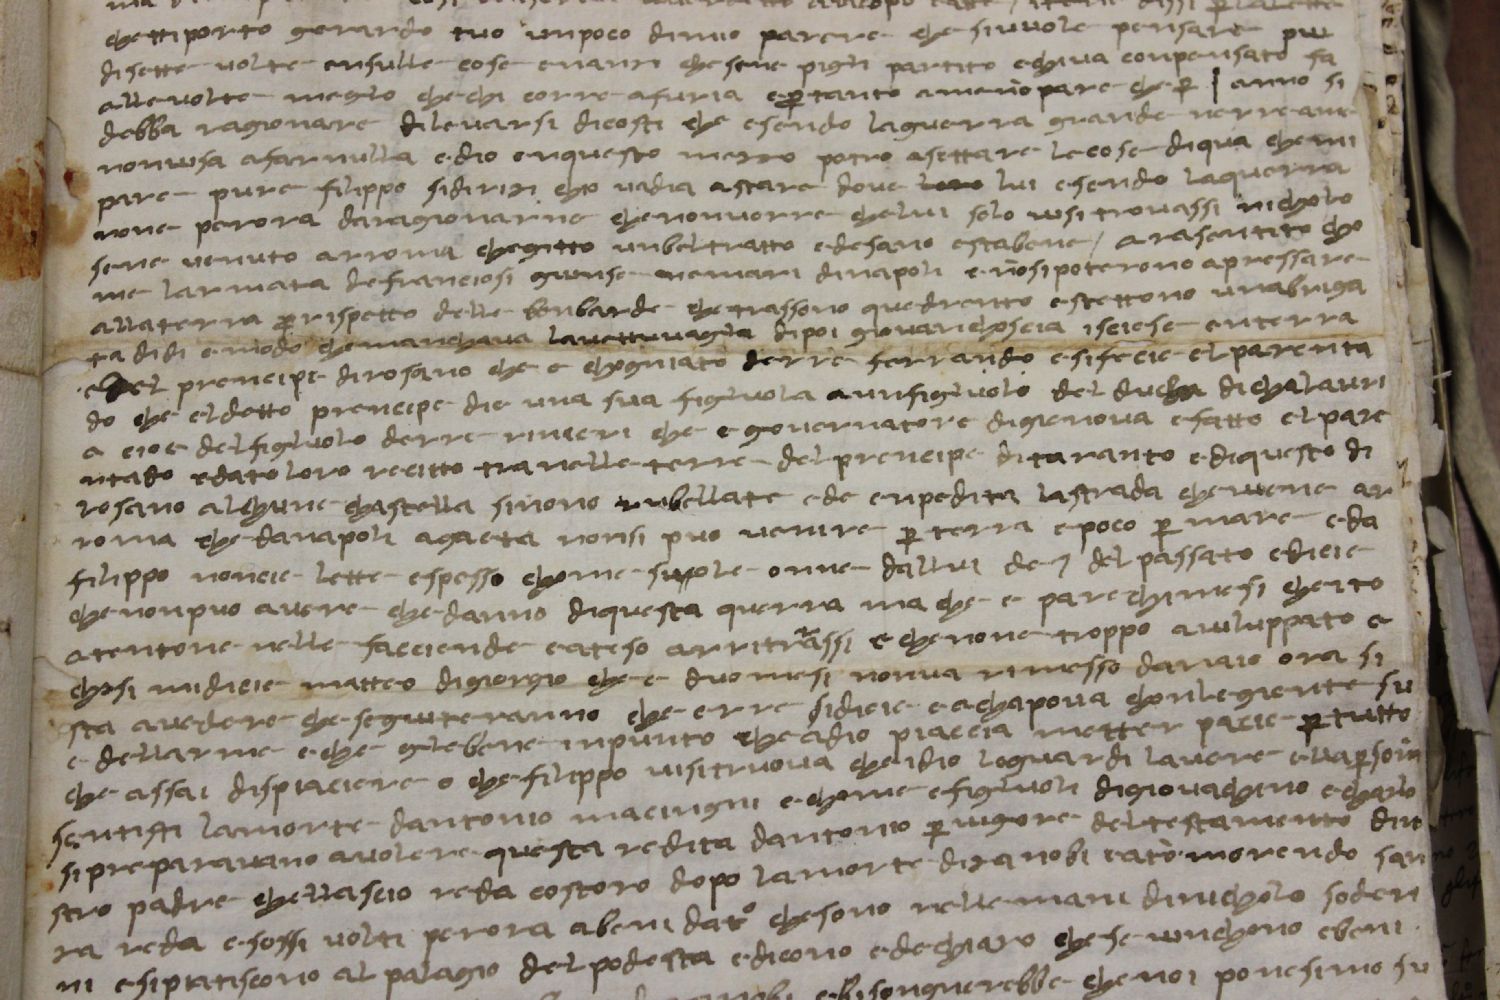 chettiporto gerardo tuo unpoco dimio parere che sivuole pensare piu
disette volte insulle cose enanzi chesene pigli partito echiva conpensato fa
allevolte meglo che chi corre afuria epertanto amenopare che per anno si
debba ragionare dilevarsi dicosti che esendo laguerra grande verreave
nonusa afarnulla edio inquesto mezzo potro asettare lecose diqua chemi
pare pure filippo sidirizi cho vadia astare dove lui esendo laguerra
none perora daragionarne chenonvorre chelui solo visi trovassi nicholo
sene venuto arroma chegitto unbeltratto edesano estabene / arasentito cho
me larmata defranciosi giunse nemari dinapoli enosipoterono apressare
allaterra perrispetto delle bonbarde chetrassono quedrento estettono unabriga
tadidi emodo chemanchava lavettuvaglia dipoi giovanichoscia isciese enterra
elprencipe dirosano che e chogniato derre ferrando esifecie elparenta
do che eldetto prencipe die una sua figliuola aunfigliuolo del ducha dichalavri
a cioe delfigliuolo derre rinieri che e governatore digienova efatto elpare
ntado edatoloro recitto tranelle terre delprencipe ditaranto ediquesto di
rosano alchune chastella sisono rubellate ede enpedita lastrada cheviene ar
roma che danapoli agaeta nonsi puo venire per terra epoco per mare eda
filippo noncie lette espesso chome suole onne dallui de 7 del passato edicie
chenonpuo avere chedanno diquesta guerra ma che e parechimesi cheito
atentone nelle facciende eateso arritrassi e chenone troppo aviluppato e
chosi midicie matteo digiorgio che e duomesi nonva rimesso danaio ora si
sta avedere cheseguiteranno che erre sidicie e achapova chonlegiente su
e dellarme eche glebene inpunto che adio piaccia metter pacie per tutto
che assai dispiaciere o che filippo visitruova cheidio loguardi lavere ellapersona
sentisti lamorte dantonio macingni echome efigliuoli digiovachino echarlo
sipreparavano avolere questa redita dantonio per vigore deltestamento dino
stro padre chellascio reda costoro dopo lamorte dizanobi morendo san
za reda esossi volti perora abeni dato chesono nellemani dinicholo soderi
ni esipiatiscono al palagio delpodesta edicono edechiaro chese vinchono ebeni
ebisongnerebbe chenoi ponesimo su